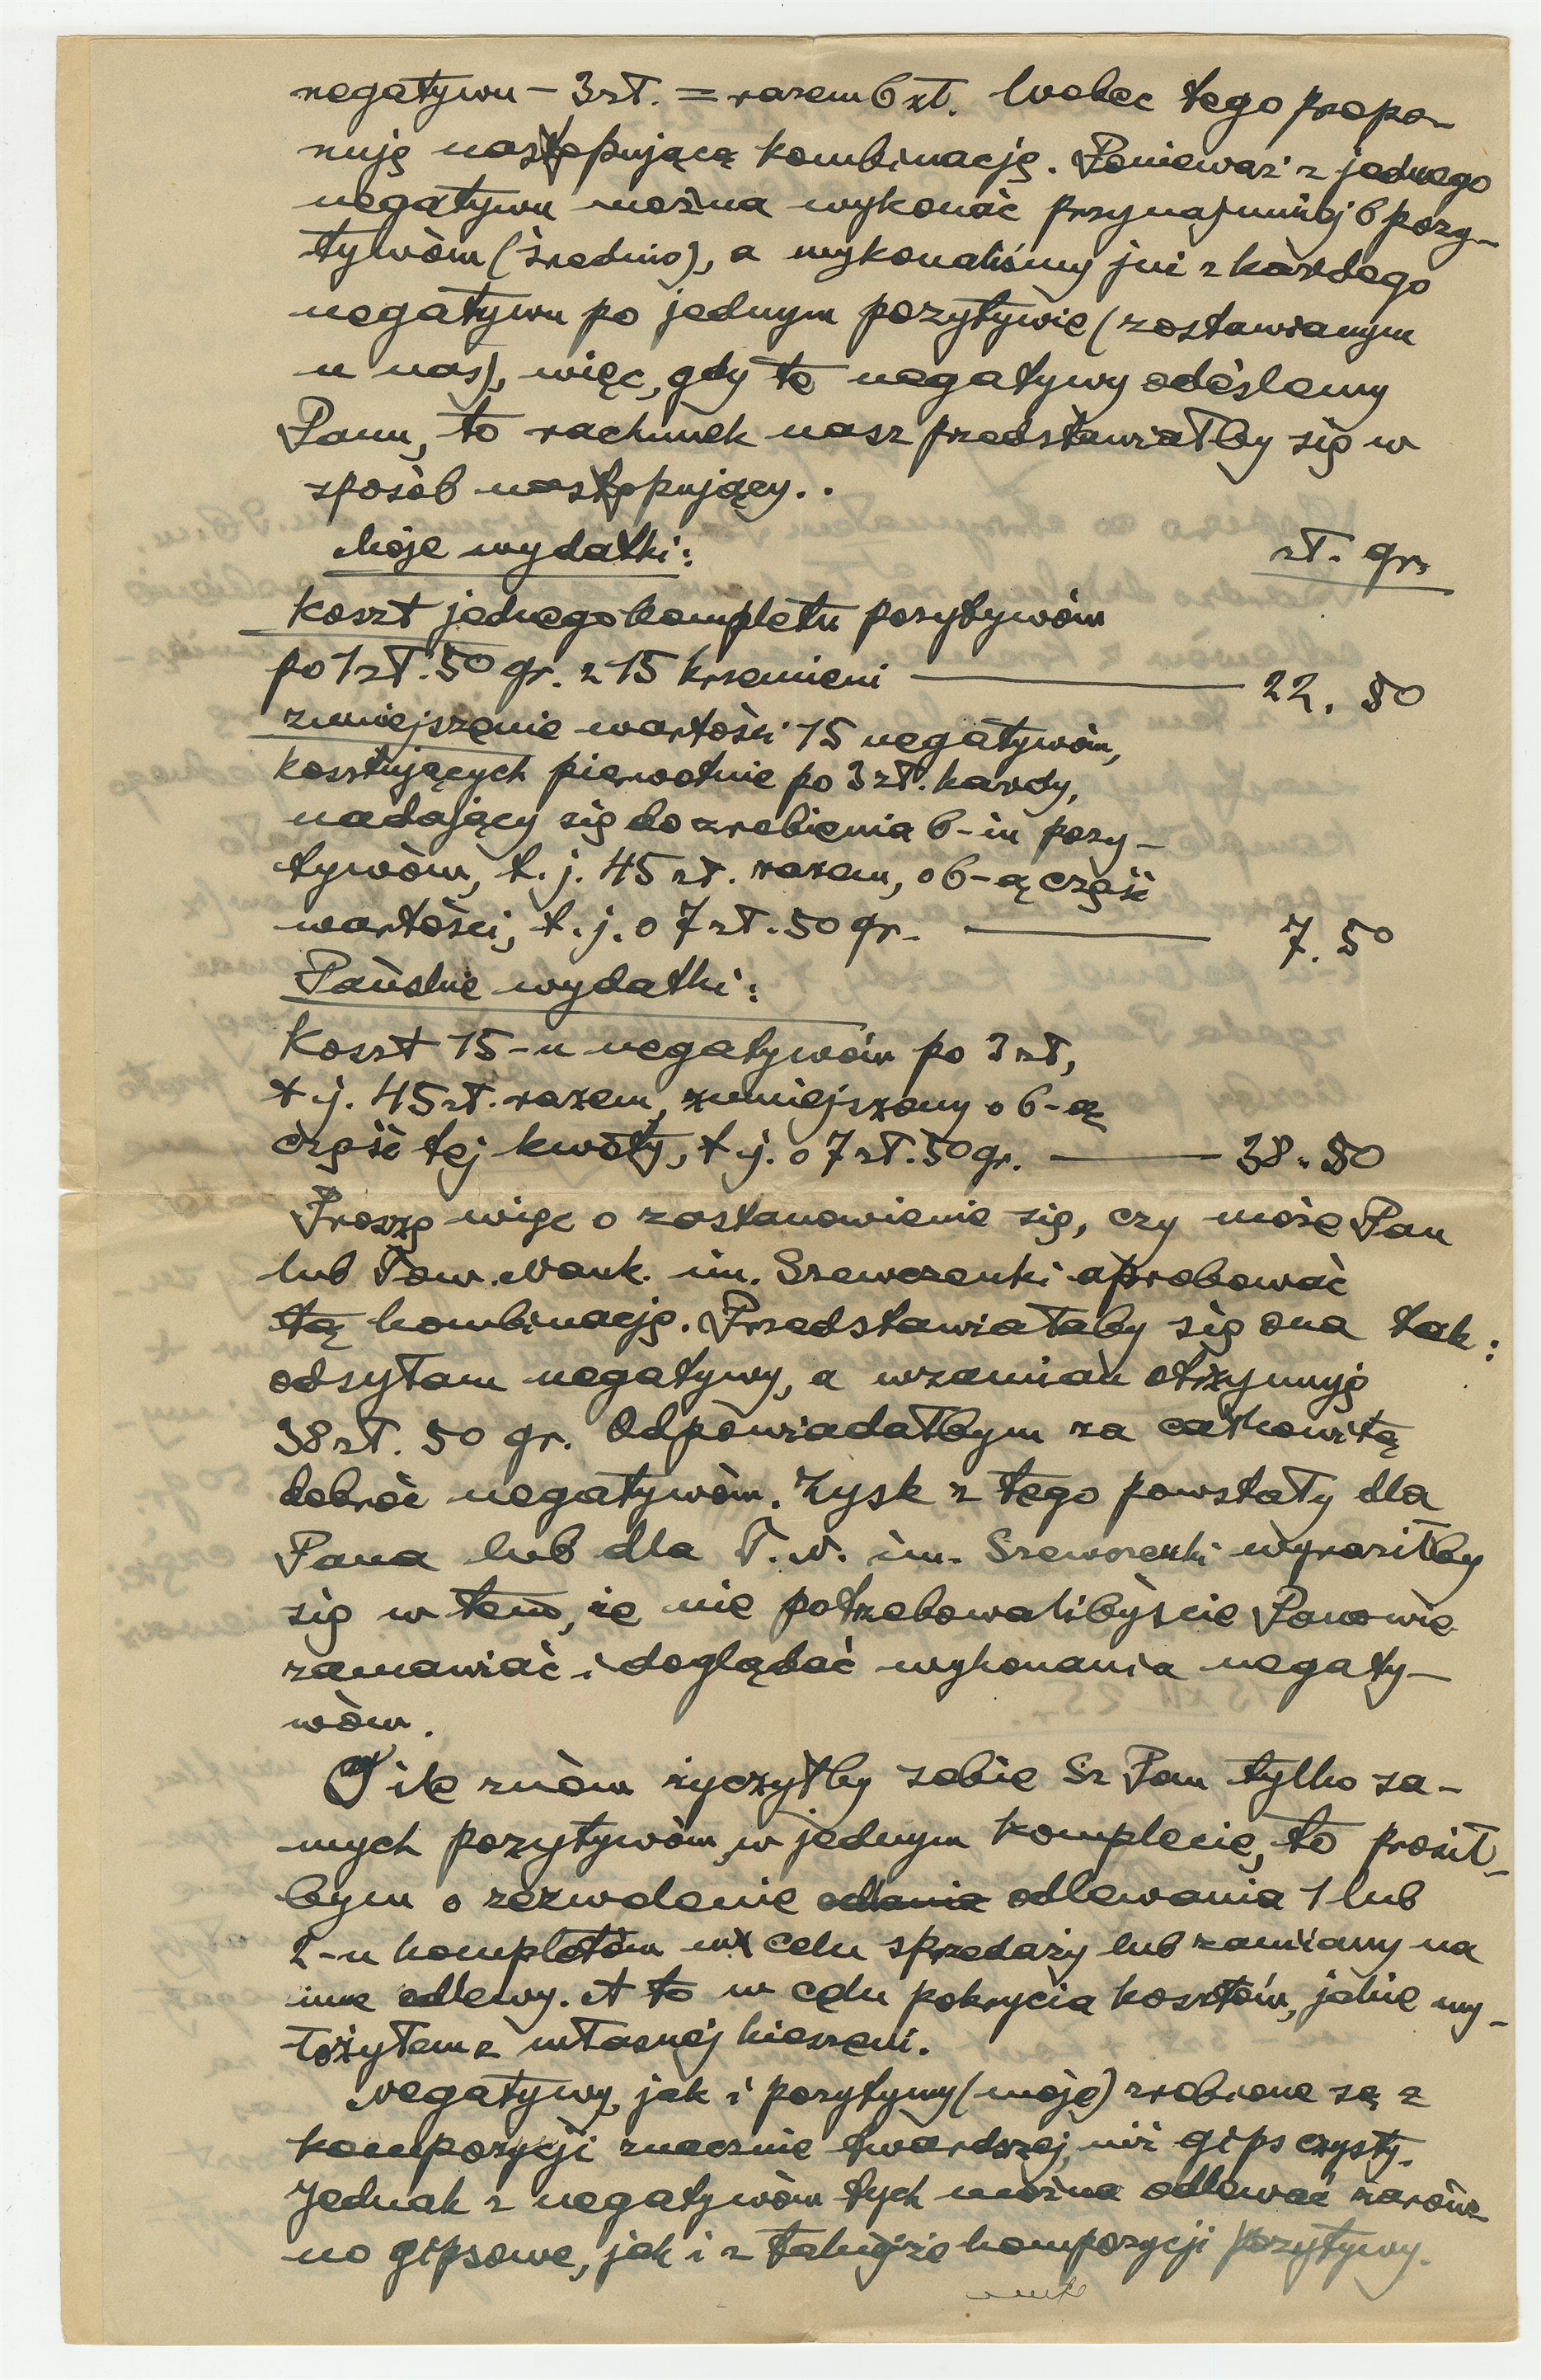 negatywu – 3 zł. = razem 6 zł. Wobec tego propo-
nuję następującą kombinację. Ponieważ z jednego
negatywu można wykonać przynajmniej 6 pozy-
tywów (średnio), a wykonaliśmy już z każdego
negatywu po jednym pozytywie (zostawianym
u nas), więc, gdy te negatywy odeślemy
Panu, to rachunek nasz przedstawiałby się w
sposób następujący..
Moje wydatki: zł. gr.
Koszt jednego kompletu pozytywów
po 1 zł. 50 gr. z 15 krzemieni — 22. 50
zmniejszenie wartości 15 negatywów,
kosztujących pierwotnie po 3 zł. każdy,
nadający się do zrobienia 6-iu pozy-
tywów, t. j. 45 zł. razem, o 6-ą część
wartości, t. j. o 7 zł. 50 gr. — 7. 50
Pańskie wydatki:
Koszt 15-u negatywów po 3 zł,
t. j. 45 zł. razem, zmniejszony o 6-ą
część tej kwoty, t. j. o 7 zł. 50 gr. — 38. 50
Proszę więc o zastanowienie się, czy może Pan
lub Tow. Nauk. im. Szewczenki aprobować
tą kombinację. Przedstawiałaby się ona tak:
odsyłam negatywy, a wzamian otrzymuję
38 zł. 50 gr. Odpowiadałbym za całkowitą
dobroć negatywów. Zysk z tego powstały dla
Pana lub dla T. N. im. Szewczenki wyraziłby
się w tem, że nie potrzebowalibyście Panowie
zamawiać i doglądać wykonania negaty-
wów.
O ile znów życzyłby sobie Sz Pan tylko sa-
mych pozytywów w jednym komplecie, to prosił-
bym o zezwolenie odlania odlewania 1 lub
2-u kompletów w celu sprzedaży lub zamiany na
inne odlewy. A to w celu pokrycia kosztów, jakie wy-
łożyłem z własnej kieszeni.
Negatywy, jak i pozytywy (moje) zrobione są z
kompozycji znacznie twardszej, niż gips czysty.
Jednak z negatywów tych można odlewać zarów-
no gipsowe, jak i z takiejże kompozycji pozytywy.